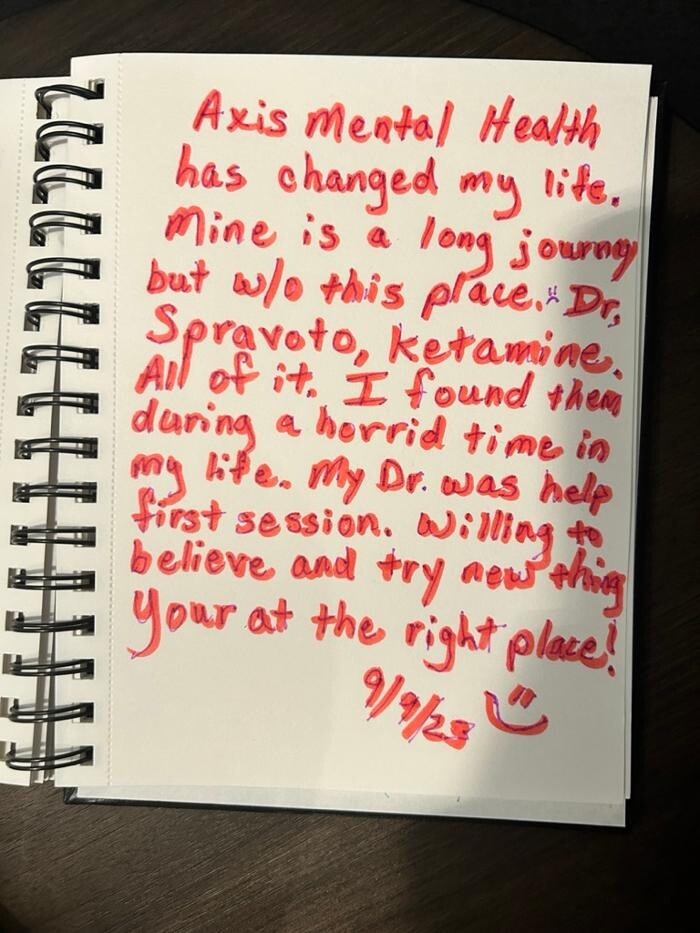 Axis Mental Health
has changed my life.
Mine is a long journy
but w/o this place. Dr,
Spravoto, ketamine.
All of it. I found them
during a horrid time in
my life. My Dr. was help
first session. Willing to
believe and try new thing
Your at the right place!
9/9/23